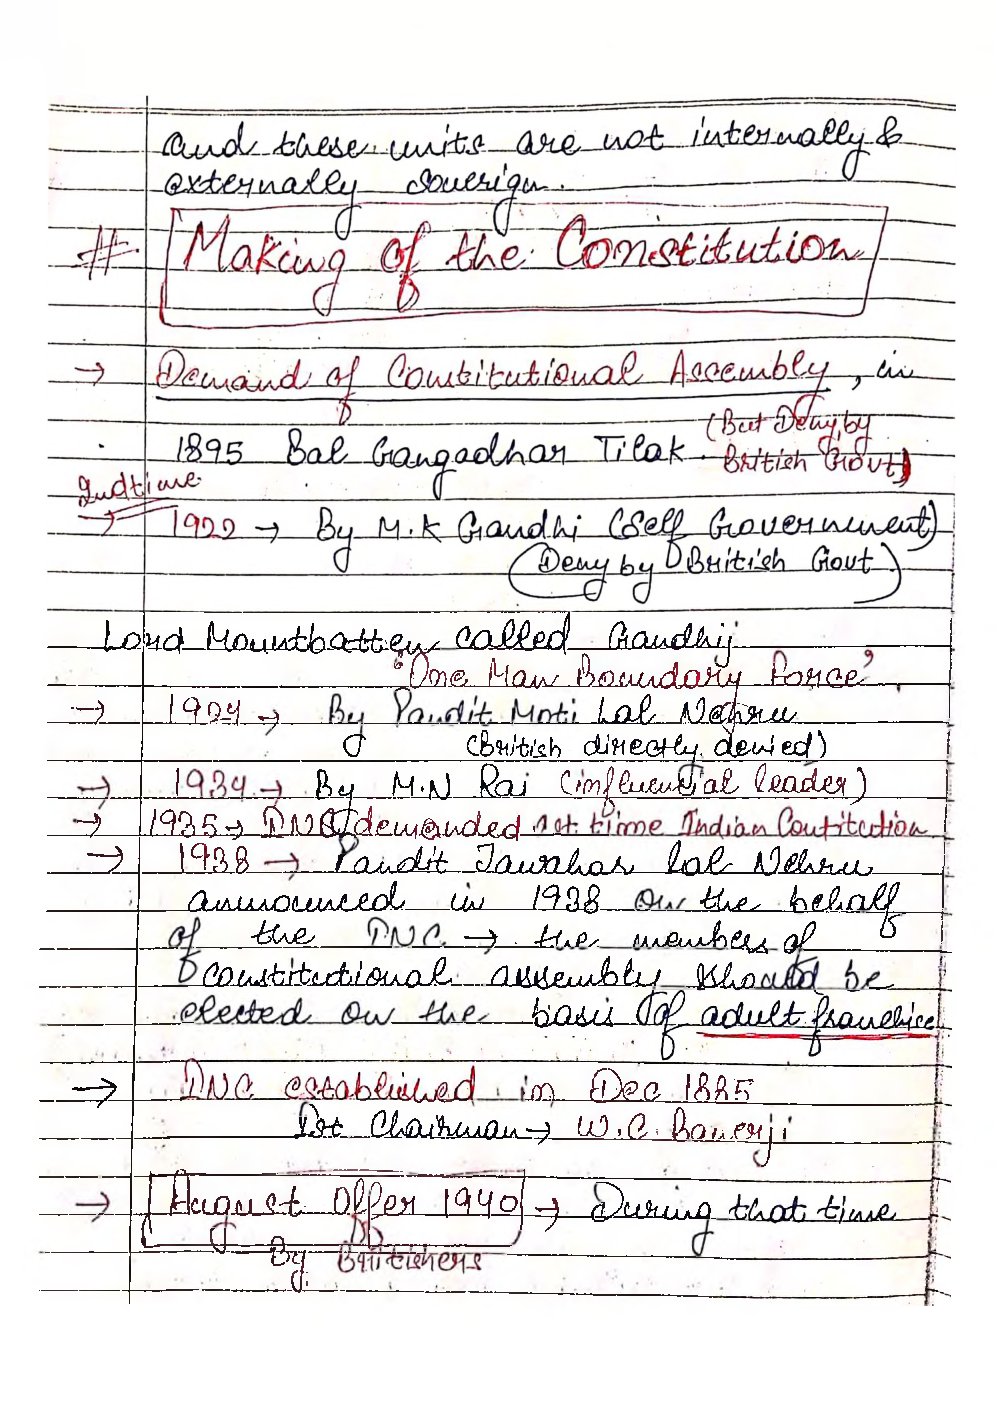 and these units are not internally &
externally soverign.
#. Making of the Constitution
→ Demand of Constitutional Assembly, in
1895 Bal Gangadhar Tilak. (But Deny by
British Govt)
2nd time
→ 1922 → By M.K Gandhi (Self Government)
(Deny by British Govt)
Lord Mountbatten called Gandhij
"One Man Boundary Force".
→ 1924 → By Pandit Moti Lal Nehru
(British directly denied)
→ 1934 → By M.N Rai (influential leader)
→ 1935 → INC demanded 1st time Indian Contitution
→ 1938 → Pandit Jawahar Lal Nehru
announced in 1938 on the behalf
of the INC → the members of
constitutional assembly should be
elected on the basis of adult franchise
→ INC established in Dec 1885
Ist Chairman → W.C. Banerji
→ August Offer 1940 → During that time
By Britishers